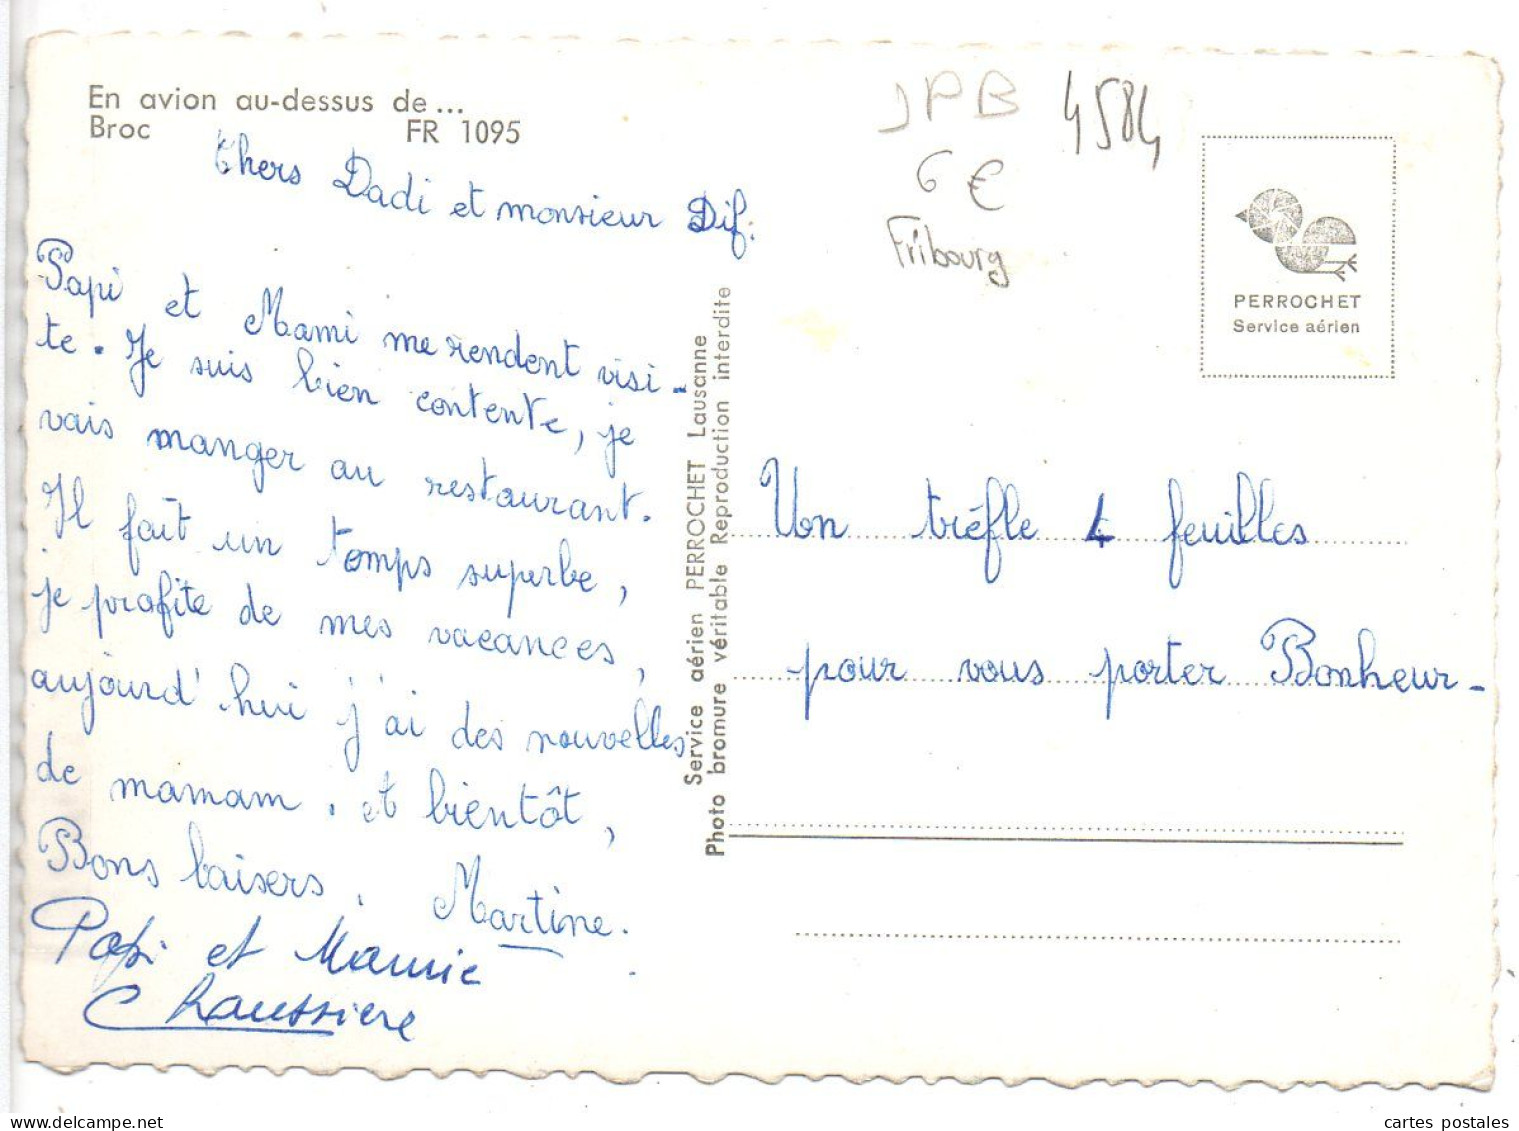 En avion au-dessus de...
Broc FR 1095
JPB 4584
6 €
Fribourg
PERROCHET
Service aérien
Chers Dadi et monsieur Dif:
Papi et Mami me rendent visi-
te. Je suis bien contente, je
vais manger au restaurant.
Il fait un temps superbe,
je profite de mes vacances,
aujourd'hui j'ai des nouvelles
de mamam. et bientôt,
Bons baisers. Martine.
Papi et Mamie
Chaussiere
Service aérien PERROCHET Lausanne
Photo bromure véritable Reproduction interdite
Un tréfle 4 feuilles
pour vous porter Bonheur-
delcampe.net
cartes postales